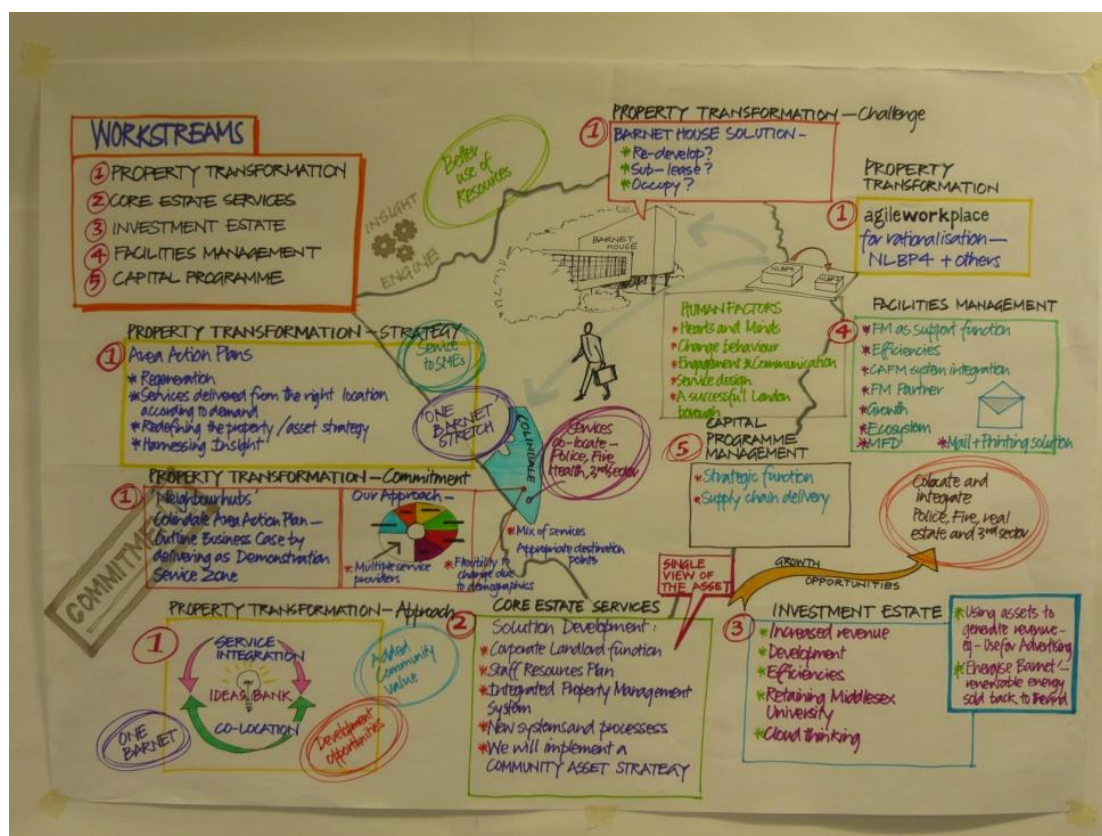 WORKSTREAMS
1 PROPERTY TRANSFORMATION
2 CORE ESTATE SERVICES
3 INVESTMENT ESTATE
4 FACILITIES MANAGEMENT
5 CAPITAL PROGRAMME
INSIGHT
ENGINE
Better
use of
Resources
PROPERTY TRANSFORMATION — Challenge
1
BARNET HOUSE SOLUTION —
* Re-develop?
* Sub-lease?
* Occupy?
BARNET
HOUSE
PROPERTY
TRANSFORMATION
1
agileworkplace
for rationalisation —
NLBP4 + others
NLBP4
HUMAN FACTORS
* Hearts and Minds
* Change behaviour
* Engagement & Communication
* Service design
* A successful London
borough
FACILITIES MANAGEMENT
4
* FM as support function
* Efficiencies
* CAFM system integration
* FM Partner
* Growth
* Ecosystem
* MFD
* Mail + Printing solution
PROPERTY TRANSFORMATION — STRATEGY
1
Area Action Plans
* Regeneration
* Services delivered from the right location
according to demand
* Redefining the property / asset strategy
* Harnessing Insight
Service
to SMEs
'ONE
BARNET
STRETCH'
COLINDALE
Services
co-locate —
Police, Fire,
Health, 3rd sector
CAPITAL
PROGRAMME
MANAGEMENT
5
* Strategic function
* Supply chain delivery
PROPERTY TRANSFORMATION — Commitment
1
'Neighbourhubs'
Colindale Area Action Plan —
Outline Business Case by
delivering as Demonstration
Service Zone
COMMITMENT
Our Approach —
* Multiple service
providers
* Flexibility to
change due
to demographics
* Mix of services
Appropriate destination
points
Colocate and
integrate
Police, Fire, real
estate and 3rd sector
GROWTH
OPPORTUNITIES
SINGLE
VIEW OF
THE ASSET
PROPERTY TRANSFORMATION — Approach
1
SERVICE
INTEGRATION
IDEAS BANK
CO-LOCATION
ONE
BARNET
Added
Community
Value
Development
opportunities
CORE ESTATE SERVICES
2
Solution Development:
* Corporate Landlord function
* Staff Resources Plan
* Integrated Property Management
System
* New systems and processess
* We will implement a
COMMUNITY ASSET STRATEGY
INVESTMENT ESTATE
3
* Increased revenue
* Development
* Efficiencies
* Retaining Middlesex
University
* Cloud thinking
* Using assets to
generate revenue —
eg - Use for Advertising
* 'Energise Barnet' —
renewable energy
sold back to the grid